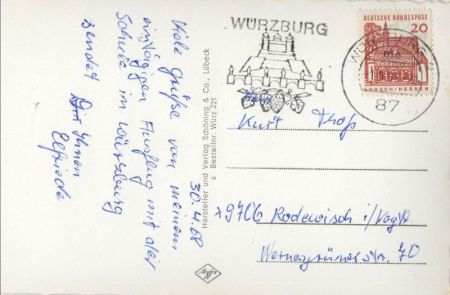 30.4.68
Viele Grüße von meinem
eintägigen Ausflug mit der
Schule in Würzburg
sendet Ihnen
Elfriede
Hersteller und Verlag Schöning & Co., Lübeck
s Bestellnr. Würz 221
Agfa
WÜRZBURG
87
DEUTSCHE BUNDESPOST
20
LORSCH/HESSEN
Kurt
x9706 Rodewisch i/Vogtl.
Wernesgrüner Str. 70